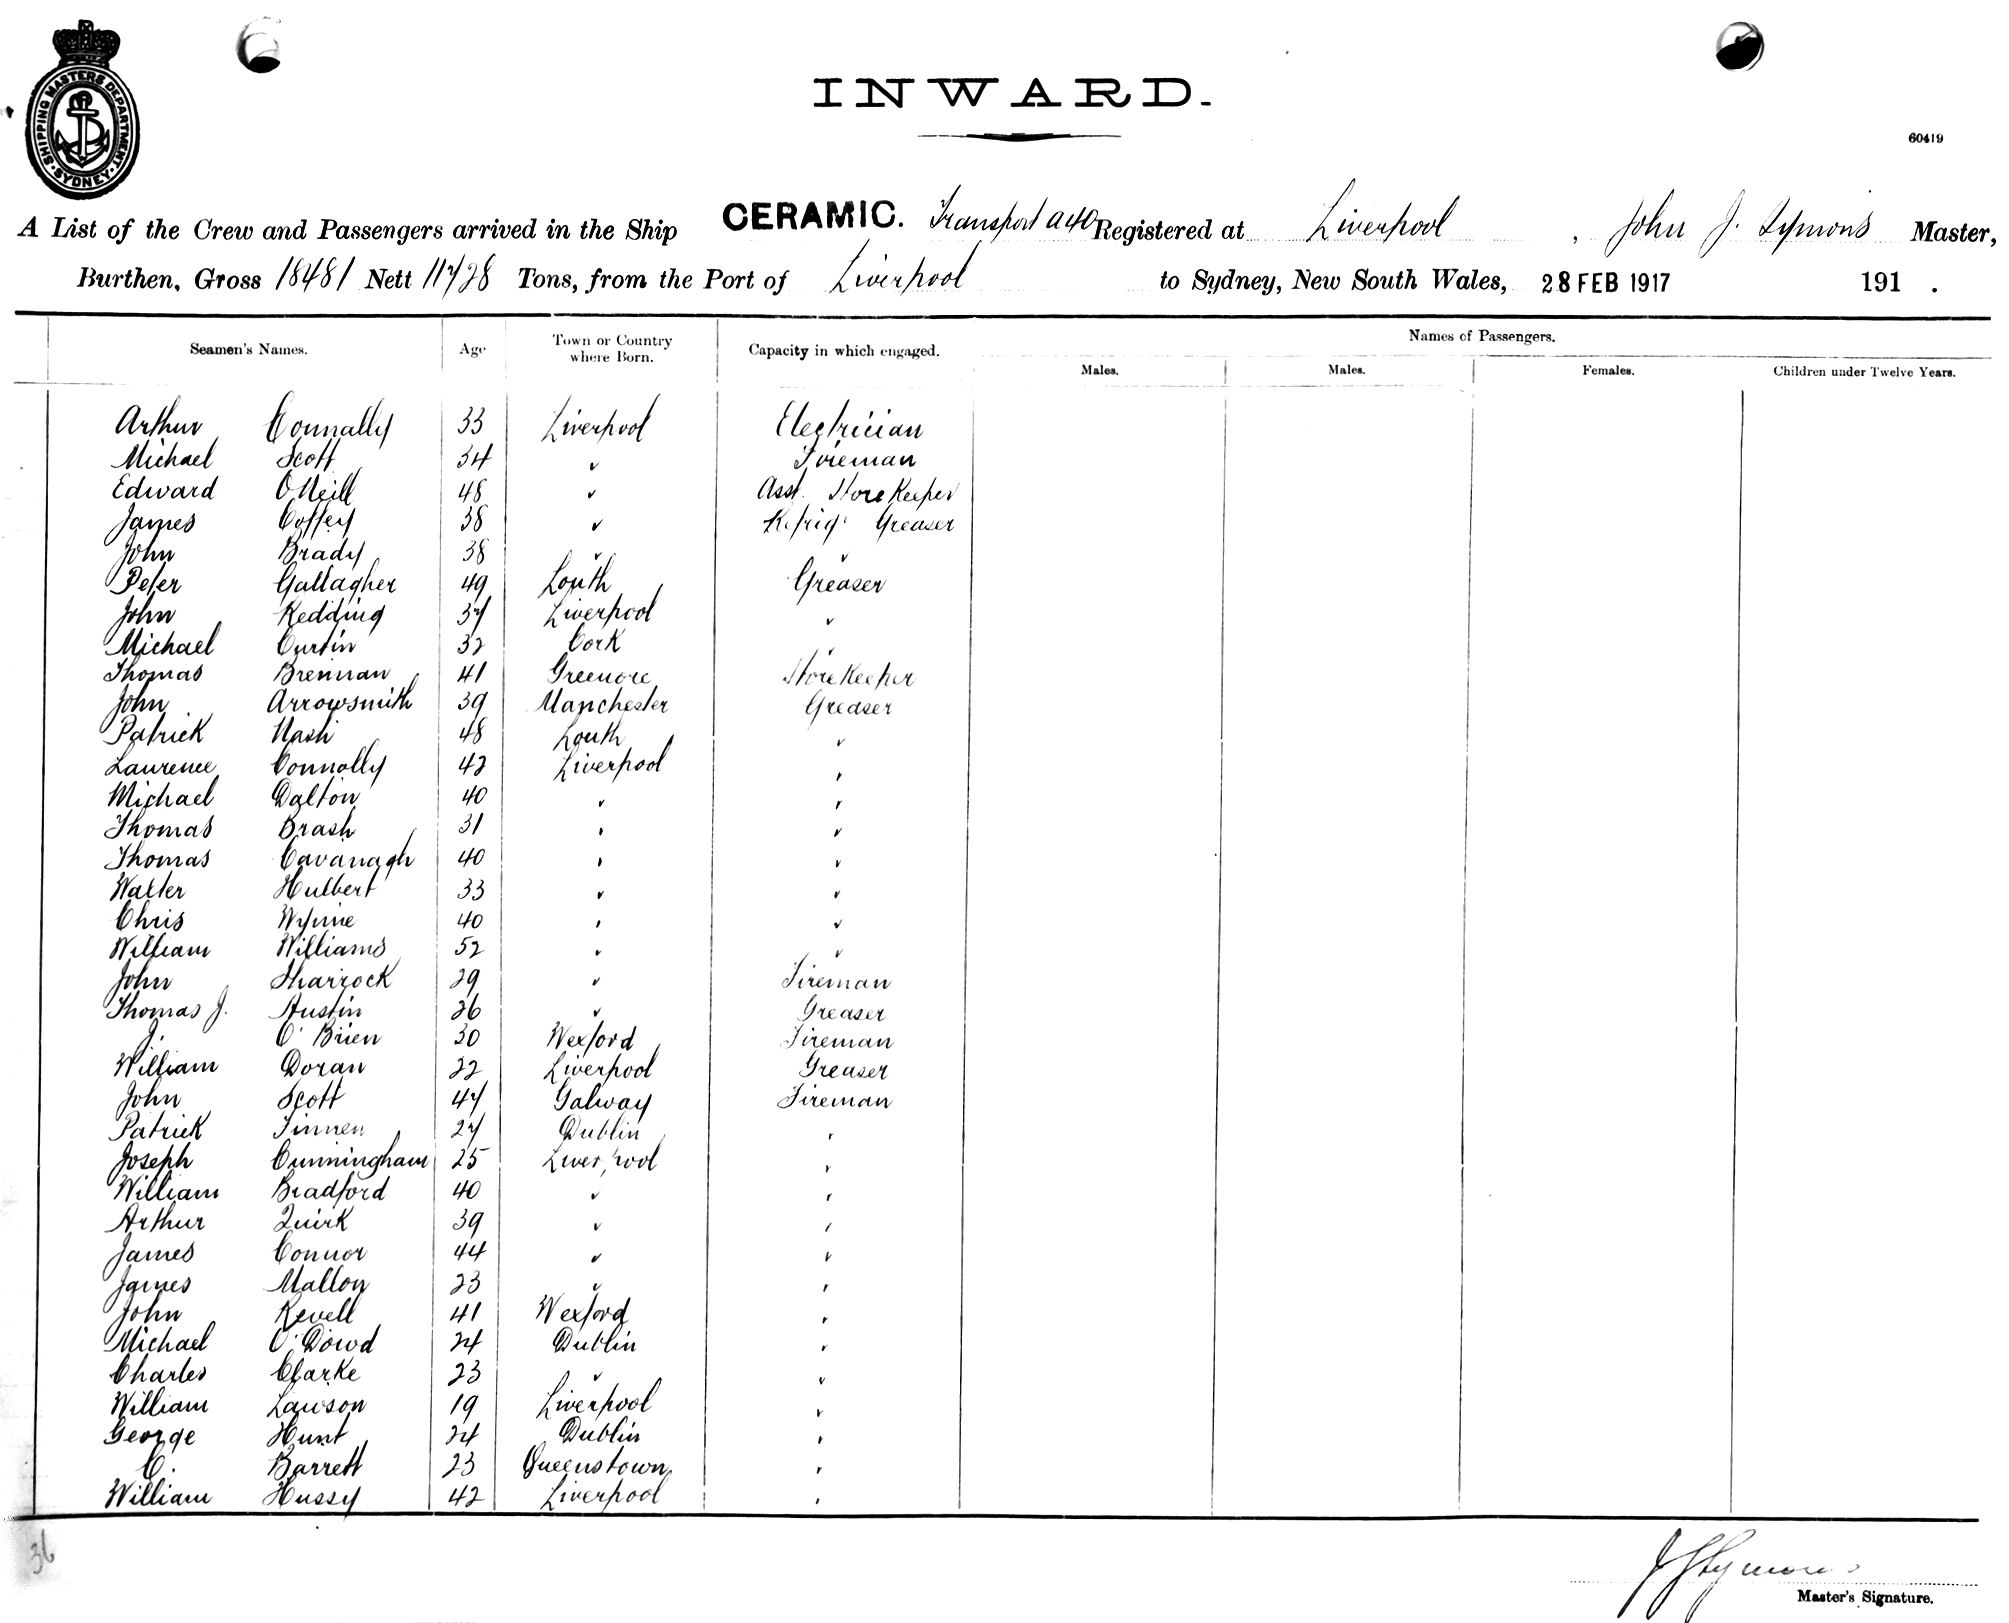 SHIPPING MASTERS DEPARTMENT · SYDNEY ·
INWARD.
60419
A List of the Crew and Passengers arrived in the Ship CERAMIC. Transport A40 Registered at Liverpool, John J. Symons Master,
Burthen, Gross 18481 Nett 11728 Tons, from the Port of Liverpool to Sydney, New South Wales, 28 FEB 1917 191 .
Seamen's Names. Age Town or Country where Born. Capacity in which engaged. Names of Passengers.
Males. Males. Females. Children under Twelve Years.
Arthur Connally 33 Liverpool Electrician
Michael Scott 34 " Fireman
Edward O'Neill 48 " Asst. StoreKeeper
James Coffey 38 " Refrig. Greaser
John Brady 38 " "
Peter Gallagher 49 Louth Greaser
John Redding 37 Liverpool "
Michael Curtin 32 Cork "
Thomas Brennan 41 Greenore StoreKeeper
John Arrowsmith 39 Manchester Greaser
Patrick Nash 48 Louth "
Laurence Connolly 42 Liverpool "
Michael Dalton 40 " "
Thomas Brash 31 " "
Thomas Cavanagh 40 " "
Walter Hulbert 33 " "
Chris Wynne 40 " "
William Williams 52 " "
John Sharrock 29 " Fireman
Thomas J. Austin 26 " Greaser
J. O'Brien 30 Wexford Fireman
William Doran 22 Liverpool Greaser
John Scott 47 Galway Fireman
Patrick Finnen 27 Dublin "
Joseph Cunningham 25 Liverpool "
William Bradford 40 " "
Arthur Quirk 39 " "
James Connor 44 " "
James Mallon 23 " "
John Revell 41 Wexford "
Michael O'Dowd 24 Dublin "
Charles Clarke 23 " "
William Lawson 19 Liverpool "
George Hunt 24 Dublin "
C. Barrett 23 Queenstown "
William Hussy 42 Liverpool "
36
J J Symons
Master's Signature.